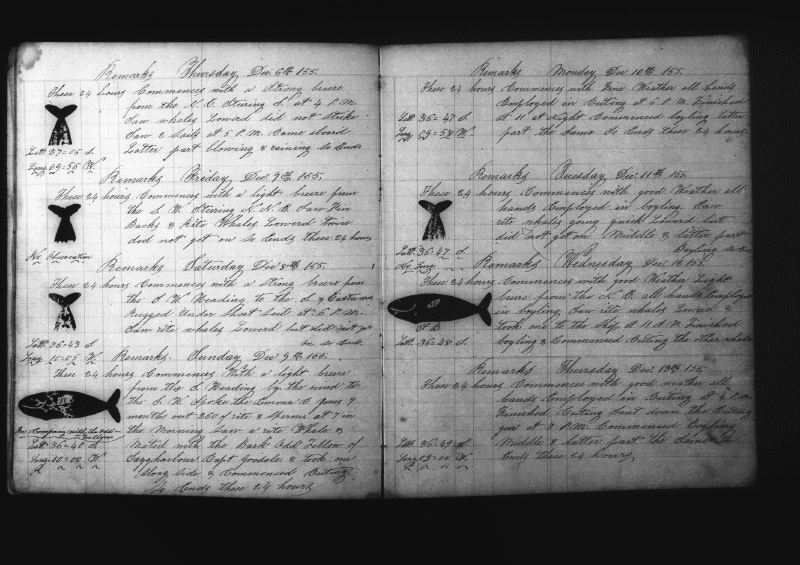 Remarks Thursday Dec 6th 155.
These 24 hours Commences with a Strong breeze
from the N. E. Stearing S. at 4 P.M.
Saw whales Lowerd did not Strike
Saw 2 Sails at 5 P.M. Came aboard
Latter part blowing & raining So Ends
Latt 37=05 S.
Long 09=55 W.
Remarks Friday Dec 7th 155.
These 24 hours Commences with a light breeze from
the S. W. Stearing N. N. E. Saw Fin
Backs & Rite Whales Lowerd twice
dod not get on So Ends these 24 hours
No Observation
Remarks Saturday Dec 8th 155.
These 24 hours Commences with a Strong breeze from
the S W Heading to the S. & Eastward
Rugged Under Short Sail at 6 P.M.
Saw rite whales Lowerd but did not get
on So Ends
Latt 36=43 S
Long 10=05 W
Remarks Sunday Dec 9th 155.
These 24 hours Commences With a light breeze
from the S Heading by the wind to
the S. W. Spoke the
months out 350 of rite & Sperm at 7 in
the Morning Saw a rite Whale &
Mated with the Bark Odd Fellow of
Saggharbour Capt Goodale & took one
along Side & Commenced Cutting
So Ends these 24 hours
In Company with the Odd-
Fellow
Latt 36=40 S
Long 10=00 W
Remarks Monday Dec 10th 155.
These 24 hours Commences with Fine Weather all hands
Employed in Cutting at 5 P.M. Finished
at 11 at Night Commenced boyling Latter
part the Same So Ends these 24 hours
Latt 36=47 S
Long 09=54 W
Remarks Tuesday Dec 11th 155
These 24 hours Commences with good Weather all
hands Employed in boyling Saw
rite whales going quick Lowerd but
did not get on Middle & latter part
Boyling So Ends
Latt 36=47 S
No Long
Remarks Wednesday Dec 155.
These 24 hours Commences with good Weather Light
breeze from the N. E. all hands Employed
in boyling Saw rite whales Lowerd &
took one to the Ship at 11 A M Finished
boyling & Commenced Cutting the other whale
Latt 36=48 S.
Remarks Thursday Dec 13th 155
These 24 hours Commences with good weather all
hands Employed in Cutting at 4 P.M.
Finished Cutting Sent down the Cutting
gear at 7 P.M Commenced Boyling
Middle & latter part the Same So
Ends these 24 hours
Latt 36=49 S.
Long 09=00 W